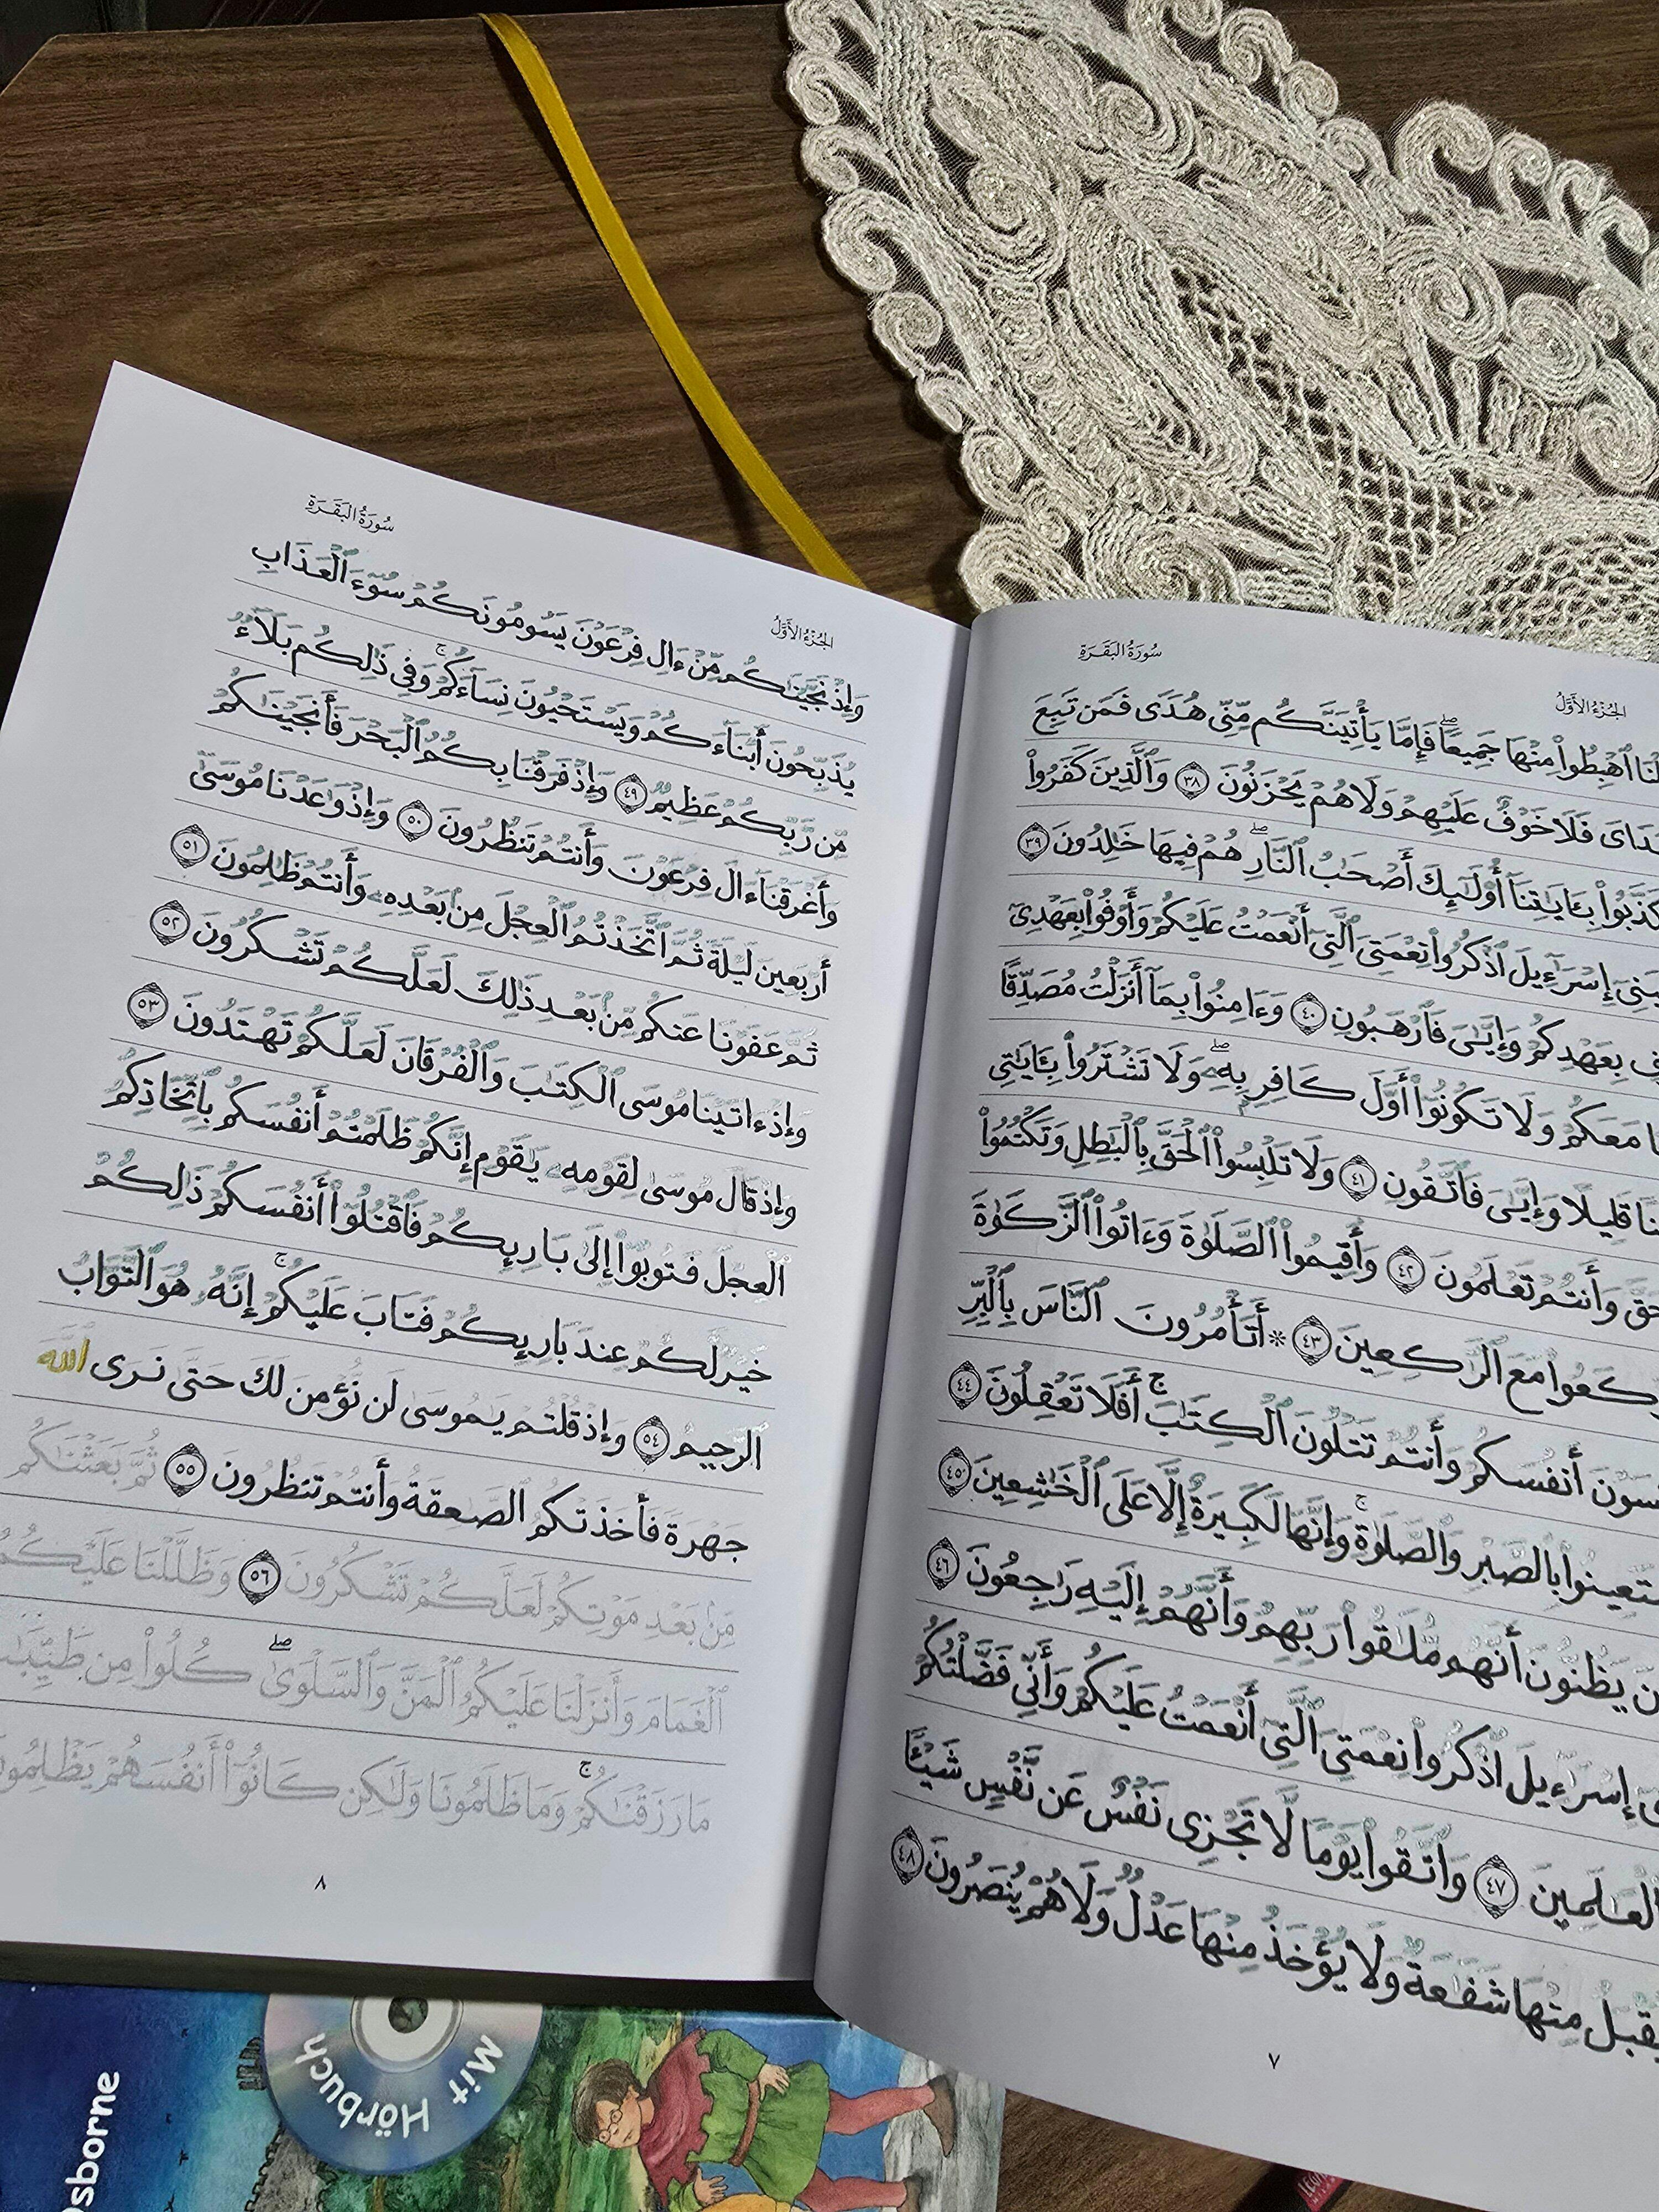 سُورَةُ البَقَرَةِ
الجُزْءُ الأَوَّلُ
ٱهْبِطُوا۟ مِنْهَا جَمِيعًا ۖ فَإِمَّا يَأْتِيَنَّكُم مِّنِّى هُدًى فَمَن تَبِعَ
فَلَا خَوْفٌ عَلَيْهِمْ وَلَا هُمْ يَحْزَنُونَ ٣٨ وَٱلَّذِينَ كَفَرُوا۟
كَذَّبُوا۟ بِـَٔايَـٰتِنَآ أُو۟لَـٰٓئِكَ أَصْحَـٰبُ ٱلنَّارِ ۖ هُمْ فِيهَا خَـٰلِدُونَ ٣٩
إِسْرَٰٓءِيلَ ٱذْكُرُوا۟ نِعْمَتِىَ ٱلَّتِىٓ أَنْعَمْتُ عَلَيْكُمْ وَأَوْفُوا۟ بِعَهْدِىٓ
بِعَهْدِكُمْ وَإِيَّـٰىَ فَٱرْهَبُونِ ٤٠ وَءَامِنُوا۟ بِمَآ أَنزَلْتُ مُصَدِّقًا
مَعَكُمْ وَلَا تَكُونُوٓا۟ أَوَّلَ كَافِرٍۭ بِهِۦ ۖ وَلَا تَشْتَرُوا۟ بِـَٔايَـٰتِى
قَلِيلًا وَإِيَّـٰىَ فَٱتَّقُونِ ٤١ وَلَا تَلْبِسُوا۟ ٱلْحَقَّ بِٱلْبَـٰطِلِ وَتَكْتُمُوا۟
وَأَنتُمْ تَعْلَمُونَ ٤٢ وَأَقِيمُوا۟ ٱلصَّلَوٰةَ وَءَاتُوا۟ ٱلزَّكَوٰةَ
مَعَ ٱلرَّٰكِعِينَ ٤٣ * أَتَأْمُرُونَ ٱلنَّاسَ بِٱلْبِرِّ
أَنفُسَكُمْ وَأَنتُمْ تَتْلُونَ ٱلْكِتَـٰبَ ۚ أَفَلَا تَعْقِلُونَ ٤٤
بِٱلصَّبْرِ وَٱلصَّلَوٰةِ ۚ وَإِنَّهَا لَكَبِيرَةٌ إِلَّا عَلَى ٱلْخَـٰشِعِينَ ٤٥
يَظُنُّونَ أَنَّهُم مُّلَـٰقُوا۟ رَبِّهِمْ وَأَنَّهُمْ إِلَيْهِ رَٰجِعُونَ ٤٦
إِسْرَٰٓءِيلَ ٱذْكُرُوا۟ نِعْمَتِىَ ٱلَّتِىٓ أَنْعَمْتُ عَلَيْكُمْ وَأَنِّى فَضَّلْتُكُمْ
ٱلْعَـٰلَمِينَ ٤٧ وَٱتَّقُوا۟ يَوْمًا لَّا تَجْزِى نَفْسٌ عَن نَّفْسٍ شَيْـًٔا
مِنْهَا شَفَـٰعَةٌ وَلَا يُؤْخَذُ مِنْهَا عَدْلٌ وَلَا هُمْ يُنصَرُونَ ٤٨
٧
سُورَةُ البَقَرَةِ
الجُزْءُ الأَوَّلُ
وَإِذْ نَجَّيْنَـٰكُم مِّنْ ءَالِ فِرْعَوْنَ يَسُومُونَكُمْ سُوٓءَ ٱلْعَذَابِ
يُذَبِّحُونَ أَبْنَآءَكُمْ وَيَسْتَحْيُونَ نِسَآءَكُمْ ۚ وَفِى ذَٰلِكُم بَلَآءٌ
مِّن رَّبِّكُمْ عَظِيمٌ ٤٩ وَإِذْ فَرَقْنَا بِكُمُ ٱلْبَحْرَ فَأَنجَيْنَـٰكُمْ
وَأَغْرَقْنَآ ءَالَ فِرْعَوْنَ وَأَنتُمْ تَنظُرُونَ ٥٠ وَإِذْ وَٰعَدْنَا مُوسَىٰٓ
أَرْبَعِينَ لَيْلَةً ثُمَّ ٱتَّخَذْتُمُ ٱلْعِجْلَ مِنۢ بَعْدِهِۦ وَأَنتُمْ ظَـٰلِمُونَ ٥١
ثُمَّ عَفَوْنَا عَنكُم مِّنۢ بَعْدِ ذَٰلِكَ لَعَلَّكُمْ تَشْكُرُونَ ٥٢
وَإِذْ ءَاتَيْنَا مُوسَى ٱلْكِتَـٰبَ وَٱلْفُرْقَانَ لَعَلَّكُمْ تَهْتَدُونَ ٥٣
وَإِذْ قَالَ مُوسَىٰ لِقَوْمِهِۦ يَـٰقَوْمِ إِنَّكُمْ ظَلَمْتُمْ أَنفُسَكُم بِٱتِّخَاذِكُمُ
ٱلْعِجْلَ فَتُوبُوٓا۟ إِلَىٰ بَارِئِكُمْ فَٱقْتُلُوٓا۟ أَنفُسَكُمْ ذَٰلِكُمْ
خَيْرٌ لَّكُمْ عِندَ بَارِئِكُمْ فَتَابَ عَلَيْكُمْ ۚ إِنَّهُۥ هُوَ ٱلتَّوَّابُ
ٱلرَّحِيمُ ٥٤ وَإِذْ قُلْتُمْ يَـٰمُوسَىٰ لَن نُّؤْمِنَ لَكَ حَتَّىٰ نَرَى ٱللَّهَ
جَهْرَةً فَأَخَذَتْكُمُ ٱلصَّـٰعِقَةُ وَأَنتُمْ تَنظُرُونَ ٥٥ ثُمَّ بَعَثْنَـٰكُم
مِّنۢ بَعْدِ مَوْتِكُمْ لَعَلَّكُمْ تَشْكُرُونَ ٥٦ وَظَلَّلْنَا عَلَيْكُمُ
ٱلْغَمَامَ وَأَنزَلْنَا عَلَيْكُمُ ٱلْمَنَّ وَٱلسَّلْوَىٰ ۖ كُلُوا۟ مِن
مَا رَزَقْنَـٰكُمْ ۚ وَمَا ظَلَمُونَا وَلَـٰكِن كَانُوٓا۟ أَنفُسَهُمْ
٨
Mit Hörbuch